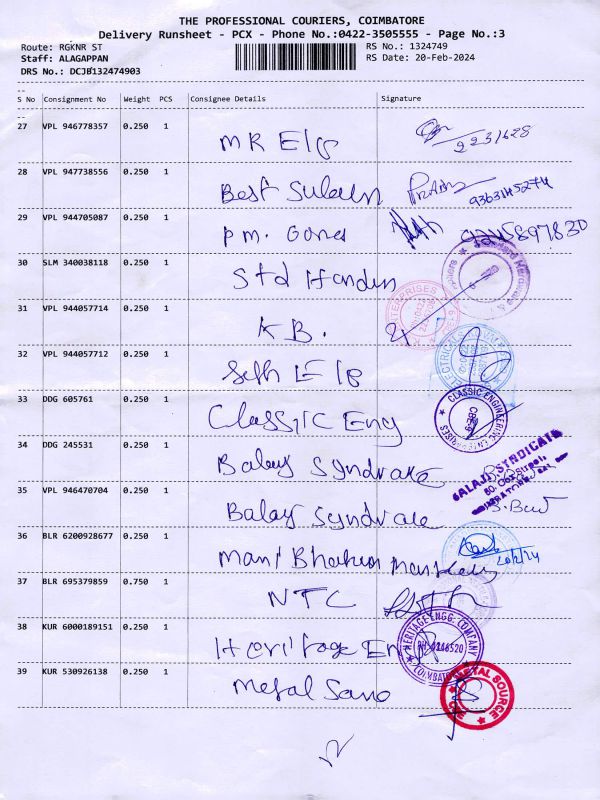 THE PROFESSIONAL COURIERS, COIMBATORE
Delivery Runsheet - PCX - Phone No.:0422-3505555 - Page No.:3
Route: RGKNR ST RS No.: 1324749
Staff: ALAGAPPAN RS Date: 20-Feb-2024
DRS No.: DCJB132474903
S No Consignment No Weight PCS Consignee Details Signature
27 VPL 946778357 0.250 1 MR 2231628
28 VPL 947738556 0.250 1 Best 9363145274
29 VPL 944705087 0.250 1 P.M.
30 SLM 340038118 0.250 1 Std
31 VPL 944057714 0.250 1 A B.
ENTERPRISES
32 VPL 944057712 0.250 1 Seth
ELECTRICALS
33 DDG 605761 0.250 1 Classic Eng
CLASSIC ENGINEERING ENTERPRISES
CBE-9
34 DDG 245531 0.250 1 Balay Syndicate
BALAJI SYNDICATE
35 VPL 946470704 0.250 1 Balay Syndicate
36 BLR 6200928677 0.250 1 Mani 20/2/24
37 BLR 695379859 0.750 1 NTC
38 KUR 6000189151 0.250 1 Heritage Eng
HERITAGE ENGG. COMPANY
COIMBATORE
39 KUR 530926138 0.250 1 Metal
METAL SOURCE